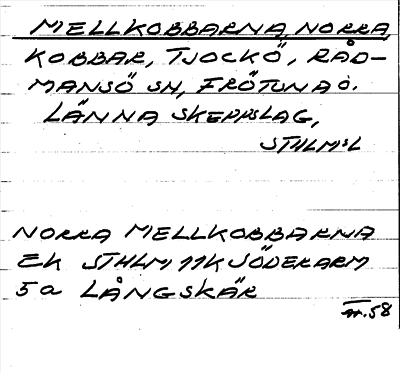 MELLKOBBARNA, NORRA,
KOBBAR, TJOCKÖ, RÅD-
MANSÖ SN, FRÖTUNA O.
LÄNNA SKEPPSLAG,
STHLM:S L
NORRA MELLKOBBARNA
EK STHLM 11K SÖDERARM
5a LÅNGSKÄR